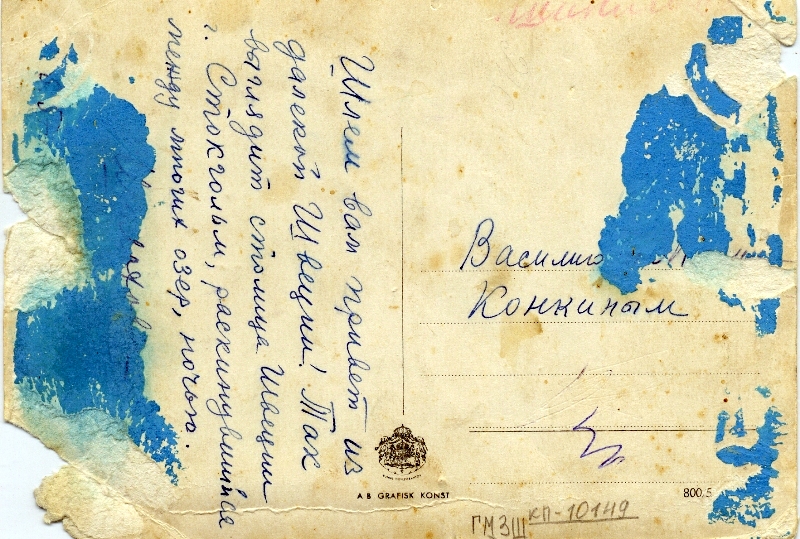 Шлем вам привет из
далекой Швеции! Так
выглядит столица Швеции
г. Стокгольм, раскинувшийся
между многих озер, ночью.
Василию
Конкиным
A B GRAFISK KONST
800,5
ГМЗШ кп-10149